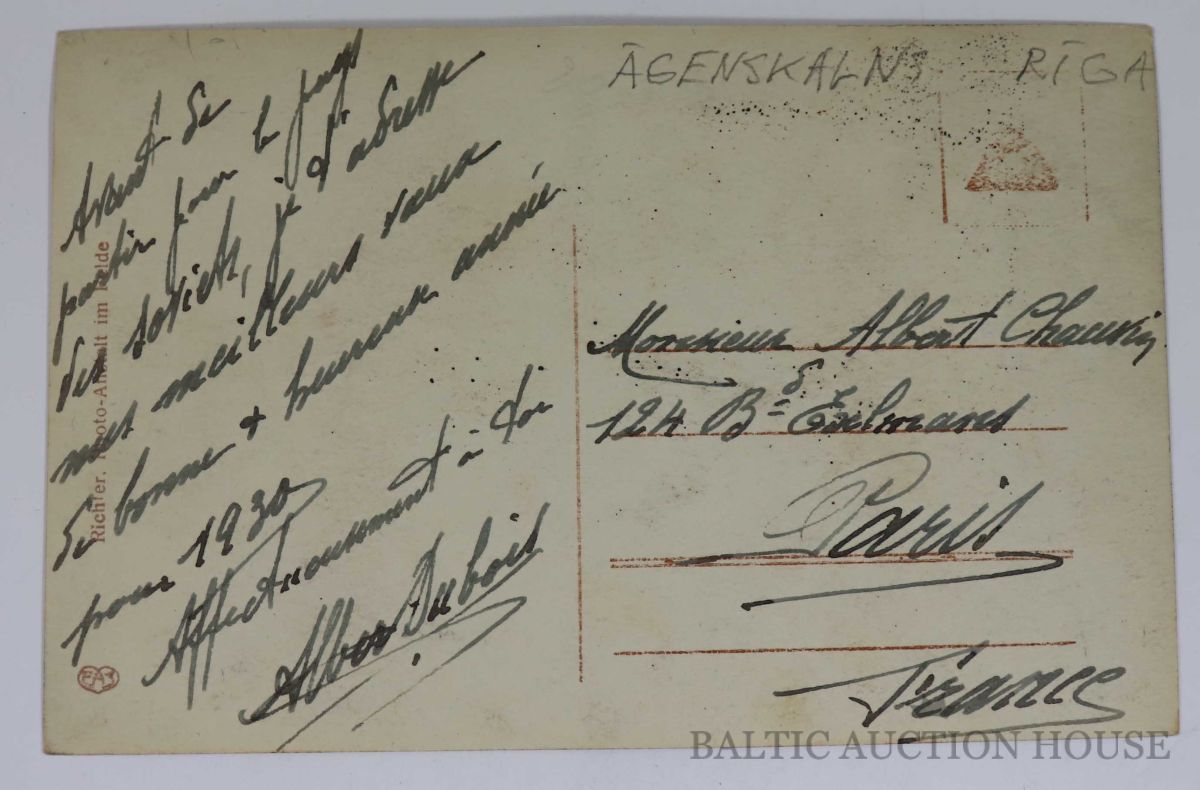 ĀGENSKALNS RĪGA
Avant de
partir pour le pays
des soviets, je t'adresse
mes meilleurs vœux
de bonne & heureuse année
pour 1930
Affectueusement à toi
Albert Dubois
Monsieur Albert
124 Bd Exelmans
Paris
France
Richter, Photo-Anstalt im Felde
BALTIC AUCTION HOUSE